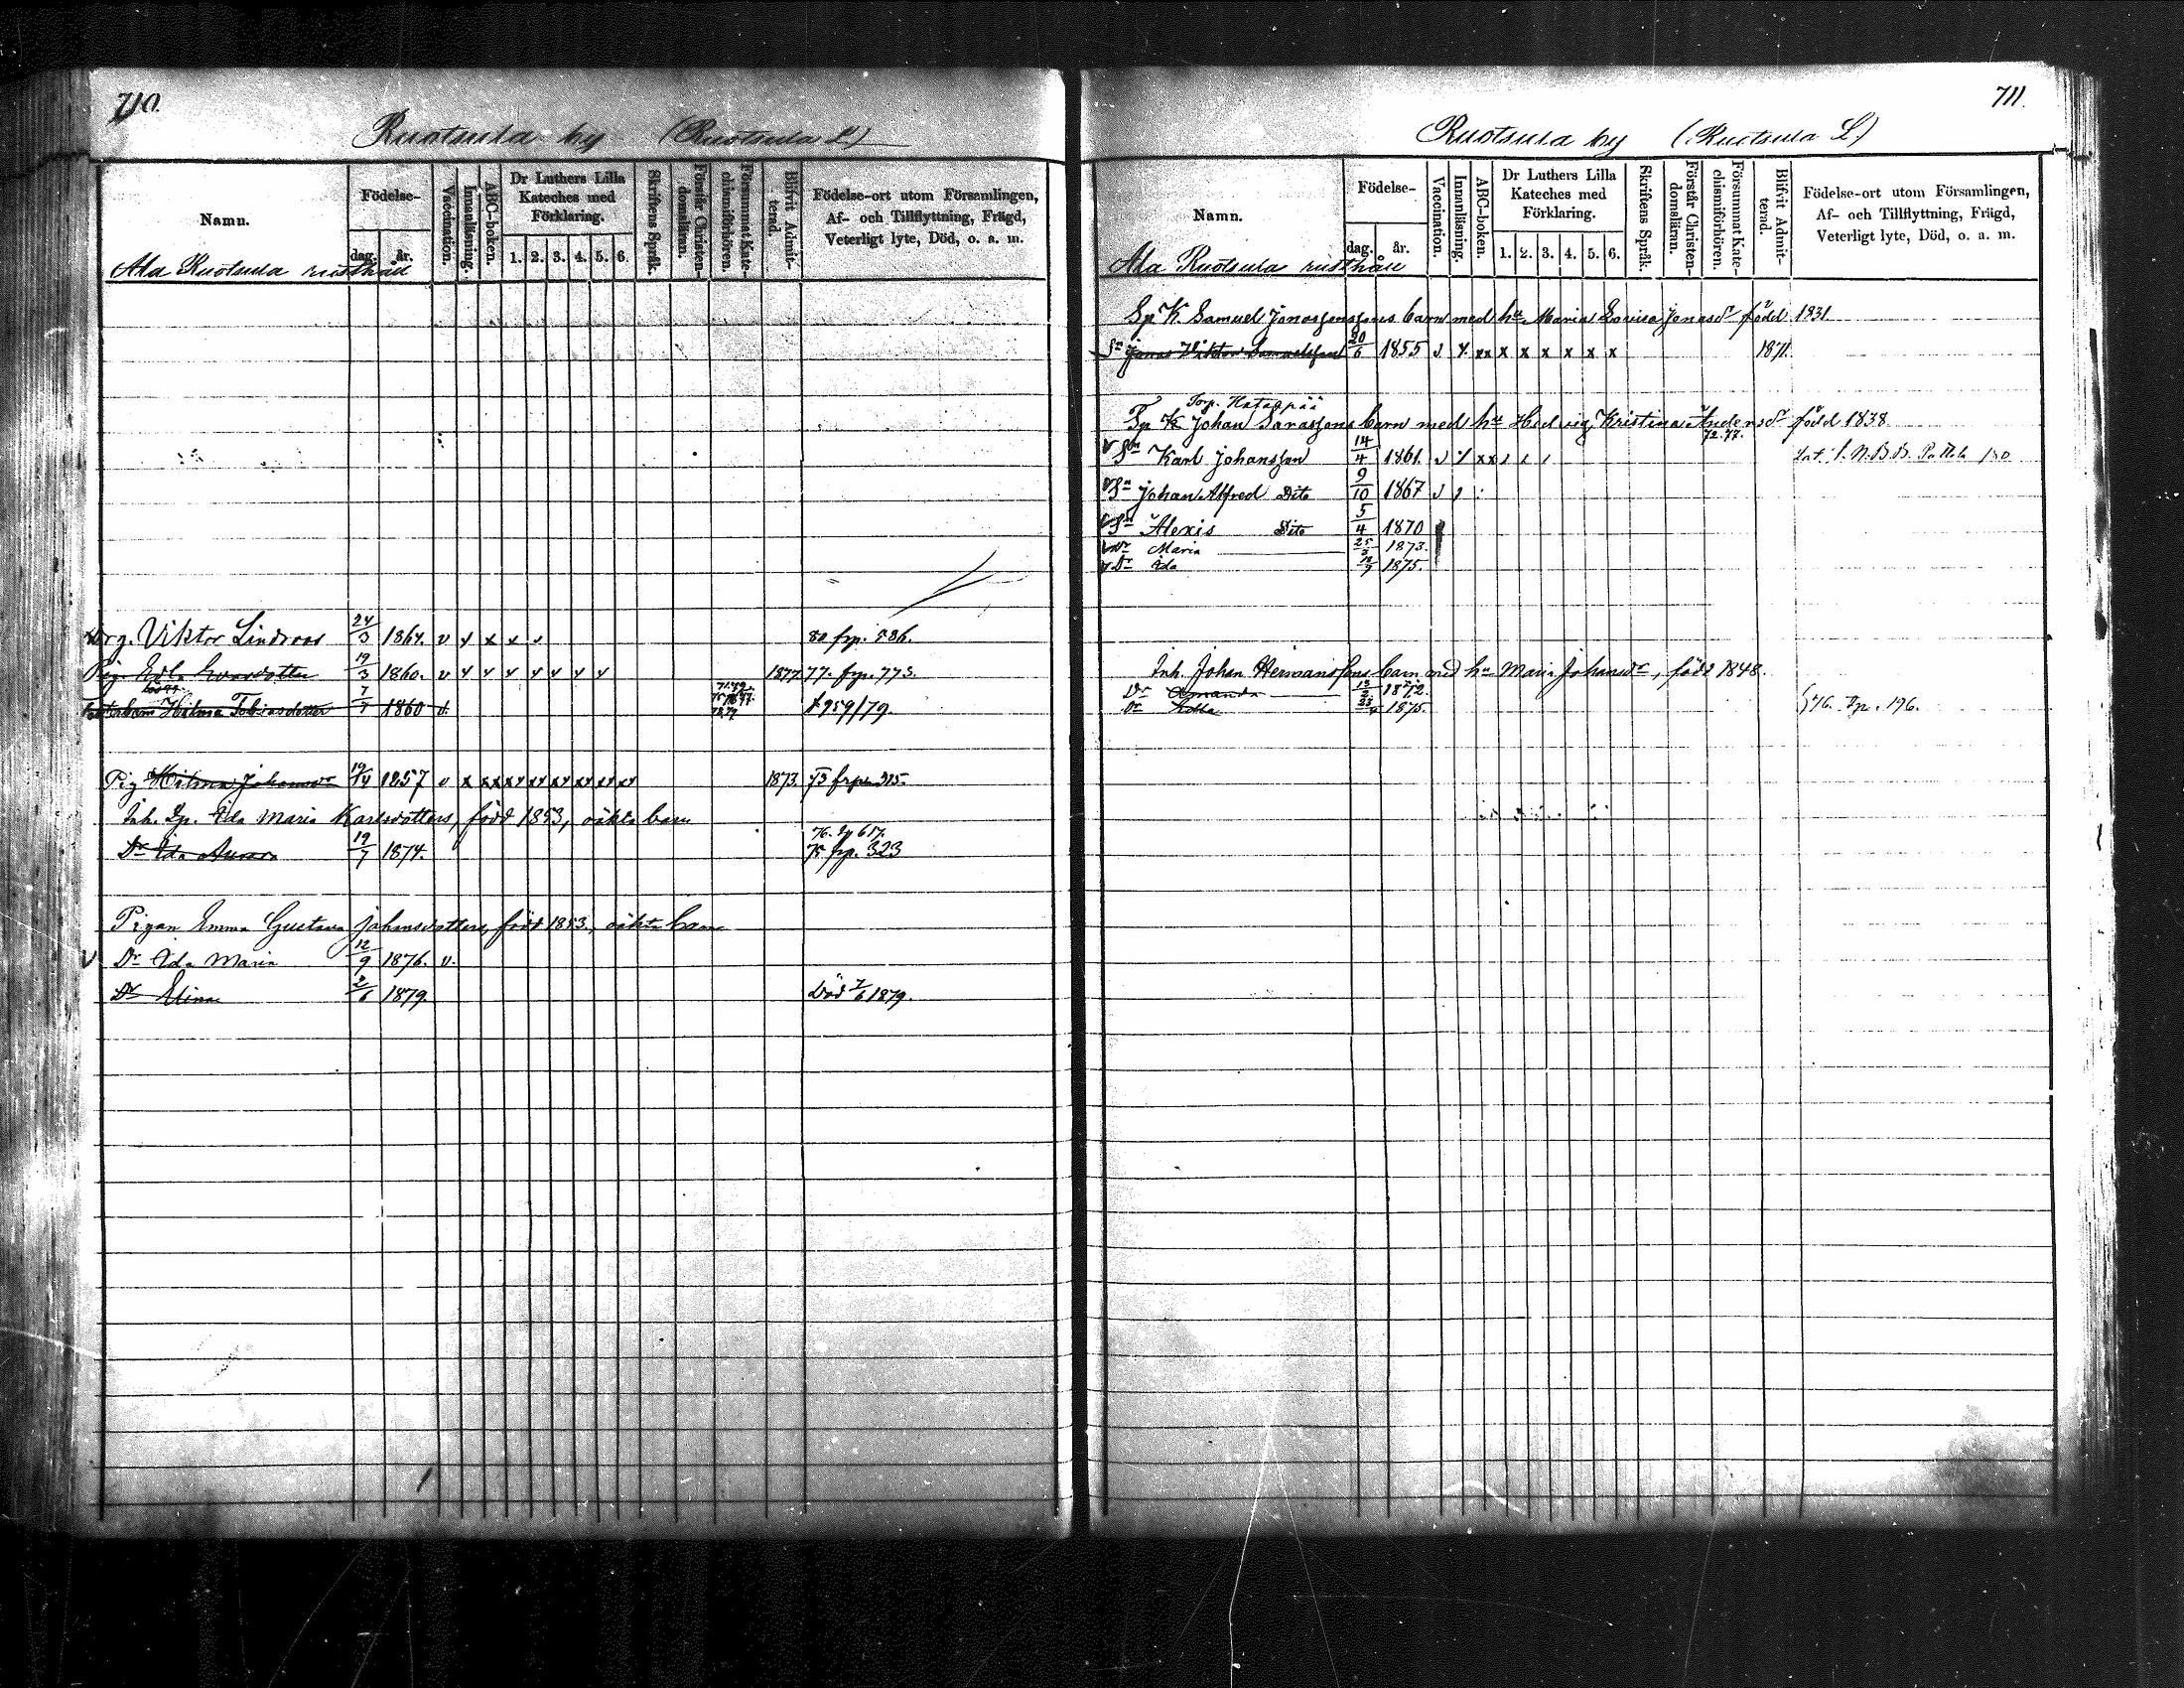 710.
Ruotsula by (Ruotsula L.)
Namn.
Födelse-
dag. år.
Vaccination.
Innanläsning.
ABC-boken.
Dr Luthers Lilla Kateches med Förklaring.
1. 2. 3. 4. 5. 6.
Skriftens Språk.
Förstår Christendomsläran.
Försummat Katechismiförhören.
Blifvit Admitterad.
Födelse-ort utom Församlingen, Af- och Tillflyttning, Frägd, Veterligt lyte, Död, o. a. m.
Ala Ruotsula rusthåll
Drg. Viktor Lindroos 24/3 1864. v x x x 80 frp. 836.
Pig. Edla Evasdotter 19/3 1860. v x x x x x x x x 1877 77. frp. 773.
Hilma Tobiasdotter 7/7 1860 v. 959/79.
Pig Hilma Johansdr 19/4 1857 v x xx xx xx xx xx xx xx 1873. 73 frp 315.
Inh. Qp. Ida Maria Karlsdotters, född 1853, oäkta barn
76. 617.
Dr Ida Aurora 19/7 1874. 75 frp. 323
Pigan Emma Gustava Johansdotters, född 1853., oäkta barn
V Dr Ida Maria 12/9 1876. v.
Dr Elina 2/6 1879. Död 7/6 1879.
711.
Ruotsula by (Ruotsula L.)
Namn.
Födelse-
dag. år.
Vaccination.
Innanläsning.
ABC-boken.
Dr Luthers Lilla Kateches med Förklaring.
1. 2. 3. 4. 5. 6.
Skriftens Språk.
Förstår Christendomsläran.
Försummat Katechismiförhören.
Blifvit Admitterad.
Födelse-ort utom Församlingen, Af- och Tillflyttning, Frägd, Veterligt lyte, Död, o. a. m.
Ala Ruotsula rusthåll
Sp. K. Samuel Jonassons barn med hu Maria Lovisa Jonasdr född 1831
Sn Jonas Viktor Samuelsson 20/6 1855 v x xx x x x x x x 1871.
Torp. Hatanpää
Tp K Johan Sarassons barn med hu Hedvig Kristina Andersdr född 1838
72. 77.
V Sn Karl Johansson 14/4 1861.
V Sn Johan Alfred Dito 9/10 1867
V Sn Alexis Dito 5/4 1870
V Dr Maria 1873.
V Dr Ida 1875.
Inh. Johan Hermanssons barn med hu Maria Johansdr, född 1848.
Dr Amanda 1872.
Dr Edla 1875. 76. 196.